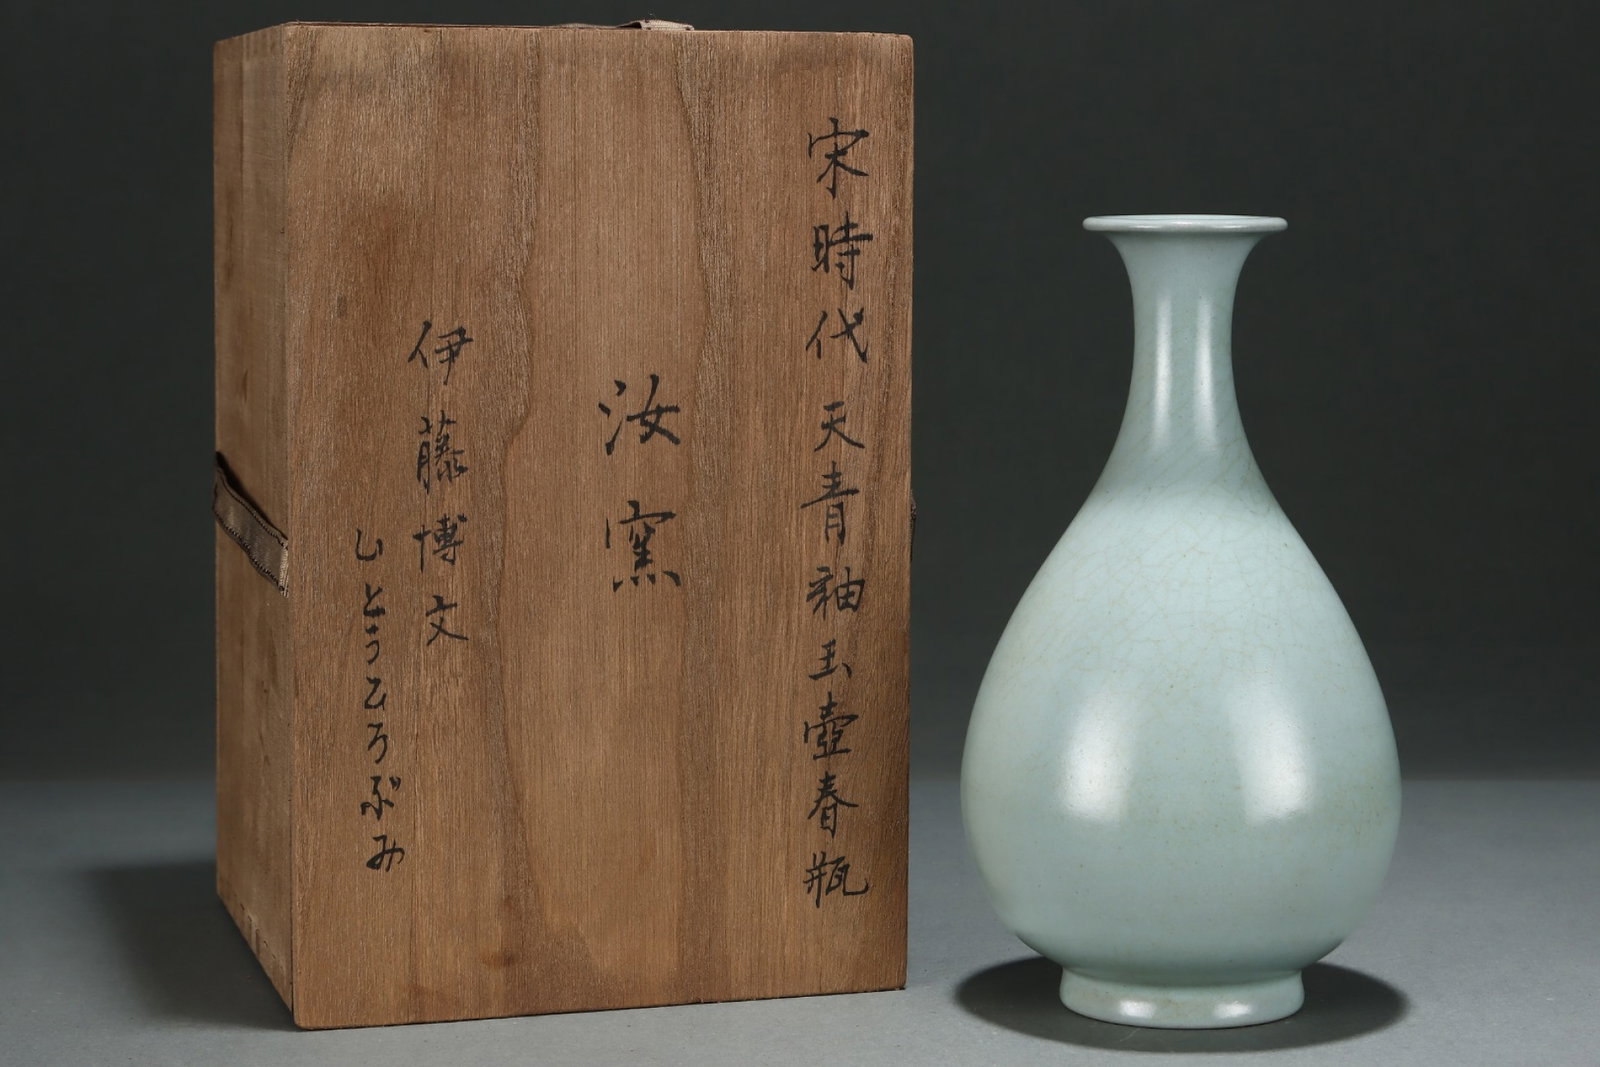 宋時代天青袖玉壺春瓶
汝窯
伊藤博文
いとうひろぶみ